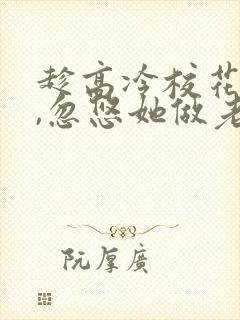 趁高冷校花
,忽悠她做老
阮厚廣